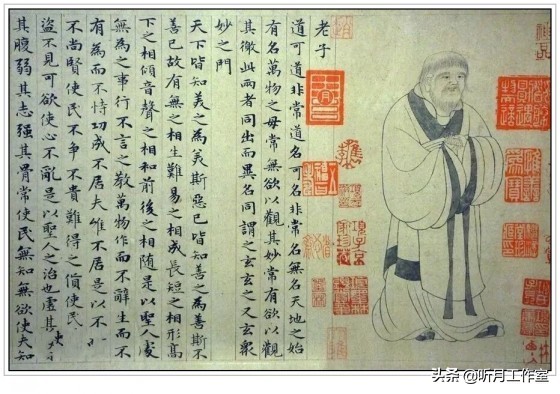 老子
道可道非常道名可名非常名無名天地之始
有名萬物之母常無欲以觀其妙常有欲以觀
其徼此兩者同出而異名同謂之玄玄之又玄衆
妙之門
天下皆知美之為美斯惡已皆知善之為善斯不
善已故有無之相生難易之相成長短之相形高
下之相傾音聲之相和前後之相隨是以聖人處
無為之事行不言之教萬物作而不辭生而不
有為而不恃功成不居夫惟不居是以不
不尚賢使民不爭不貴難得之貨使民
盜不見可欲使心不亂是以聖人之治也虛其
其腹弱其志強其骨常使民無知無欲使夫知
头条 @听月工作室